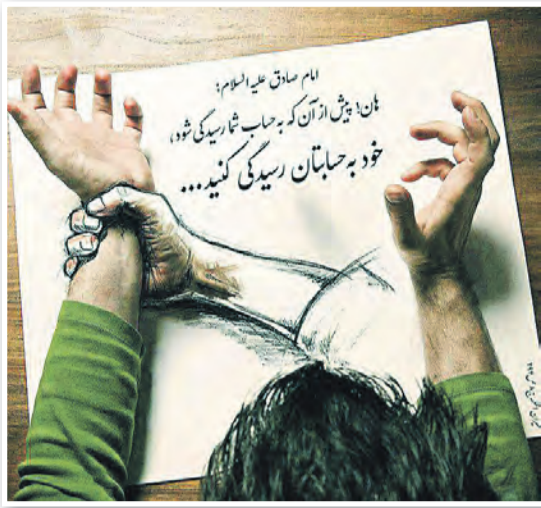 امام صادق علیه السلام:
هان! پیش از آن که به حساب شما رسیدگی شود،
خود به حسابتان رسیدگی کنید...